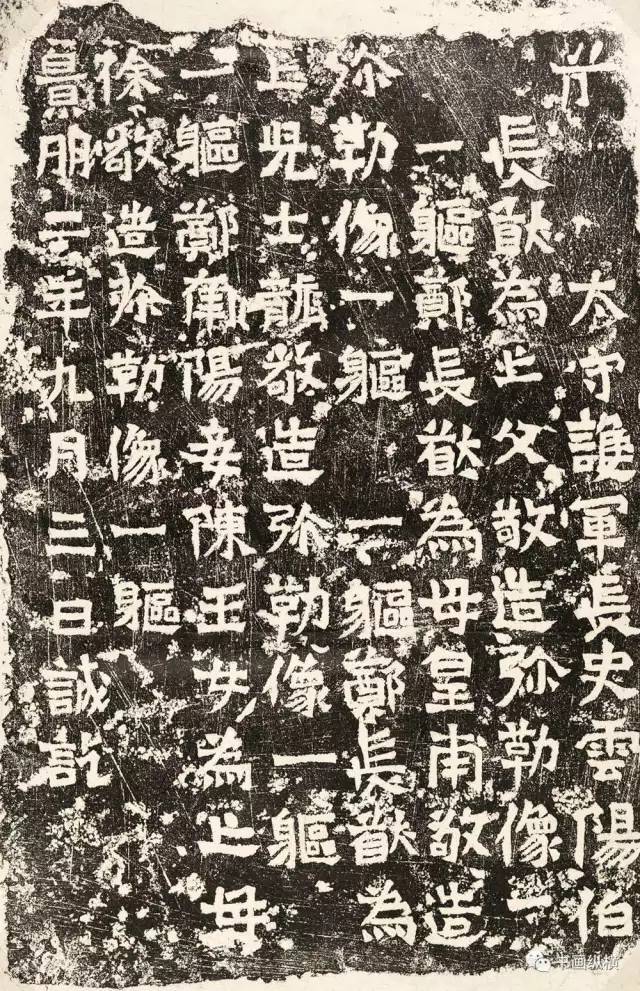 前太守護軍長史雲陽伯
長猷為亡父敬造弥勒像一
一軀鄭長猷為母皇甫敬造
弥勒像一軀一軀鄭長猷為
亡兒士龍敬造弥勒像一軀
一軀鄭南陽妾陳玉女為亡母
徐敬造弥勒像一軀
景明二年九月三日誡訖
书画纵横